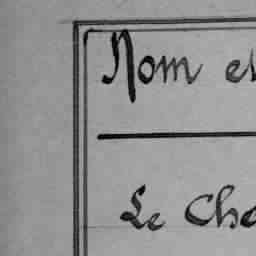 Nom et
Le Che